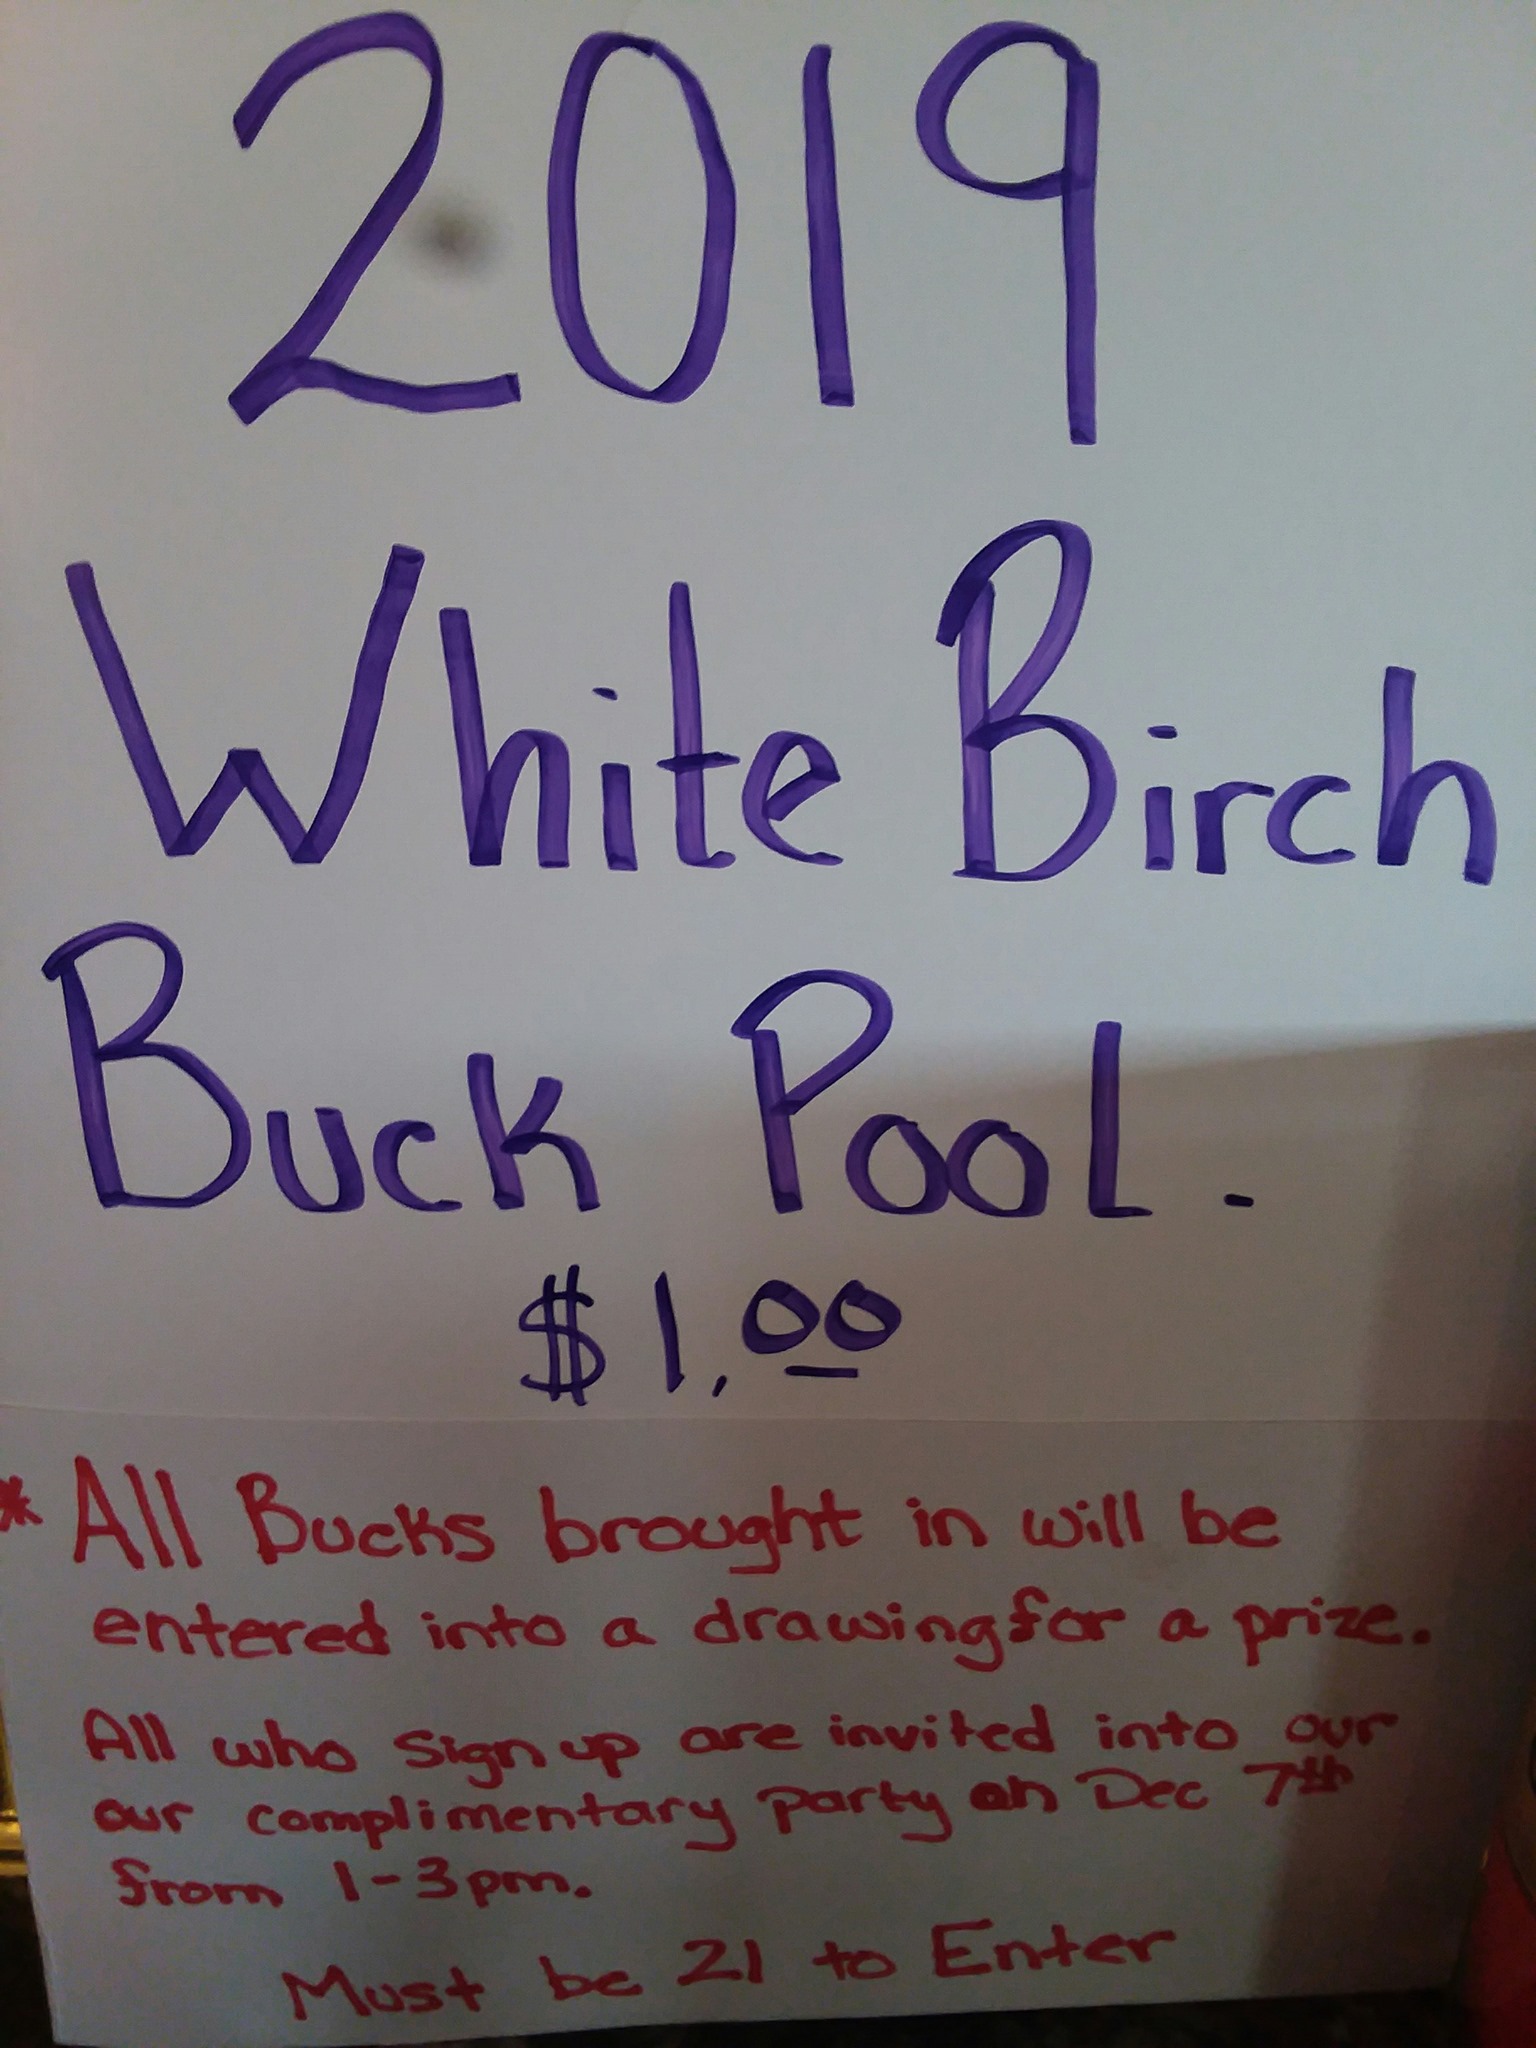 2019
White Birch
Buck Pool.
$1.00
* All Bucks brought in will be
entered into a drawing for a prize.
All who sign up are invited into our
our complimentary party on Dec 7th
from 1-3pm.
Must be 21 to Enter